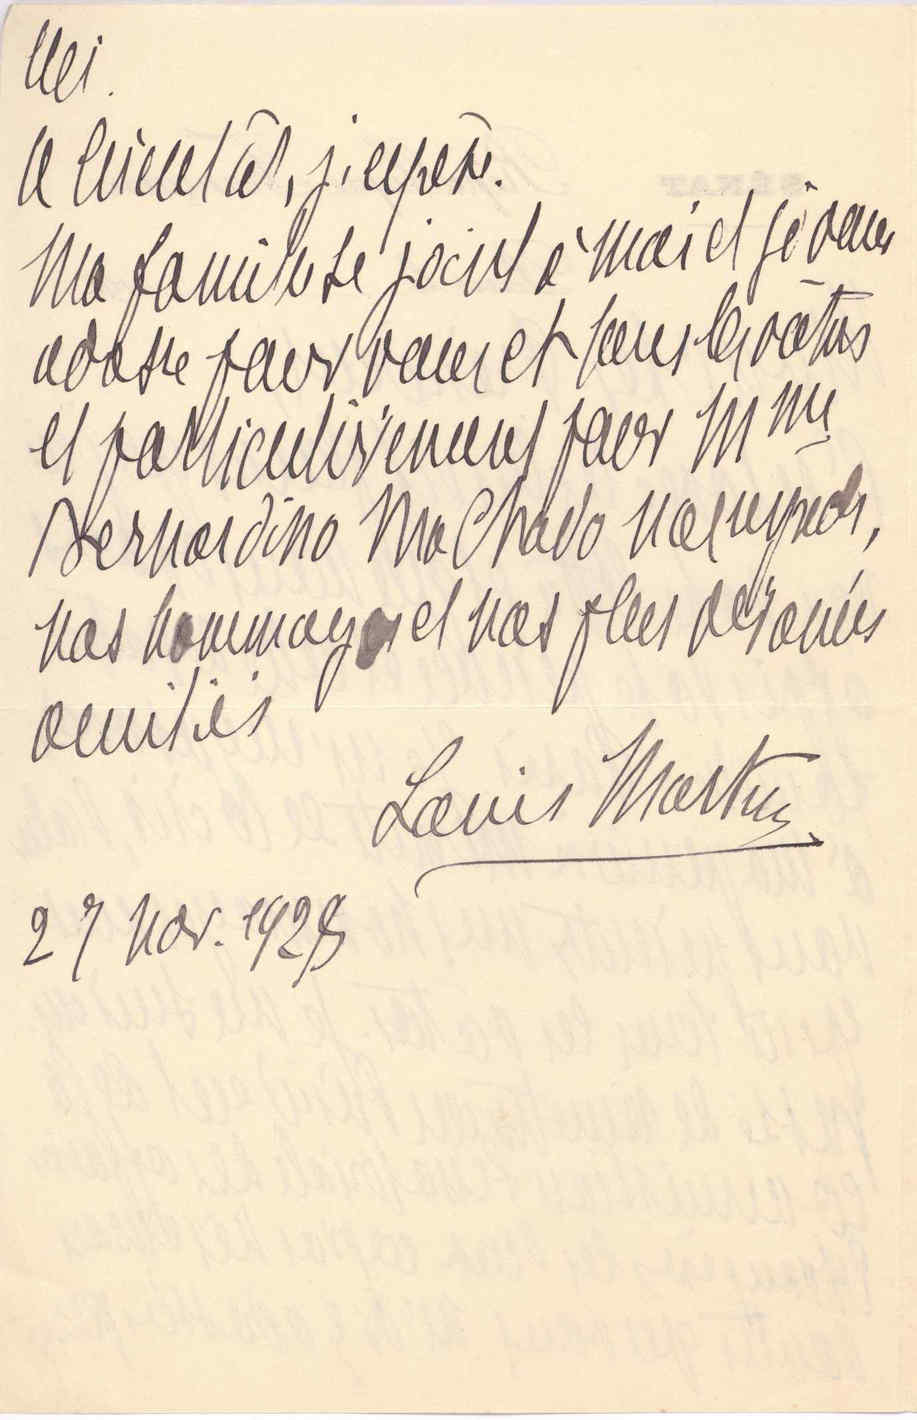 A bientôt, j'espère.
Ma famille se joint à moi et je vous
adresse pour vous et tous les vôtres
et particulièrement pour Mme
Bernardino Machado nos respects,
nos hommages et nos plus dévouées
amitiés
Louis Martin
27 nov. 1928